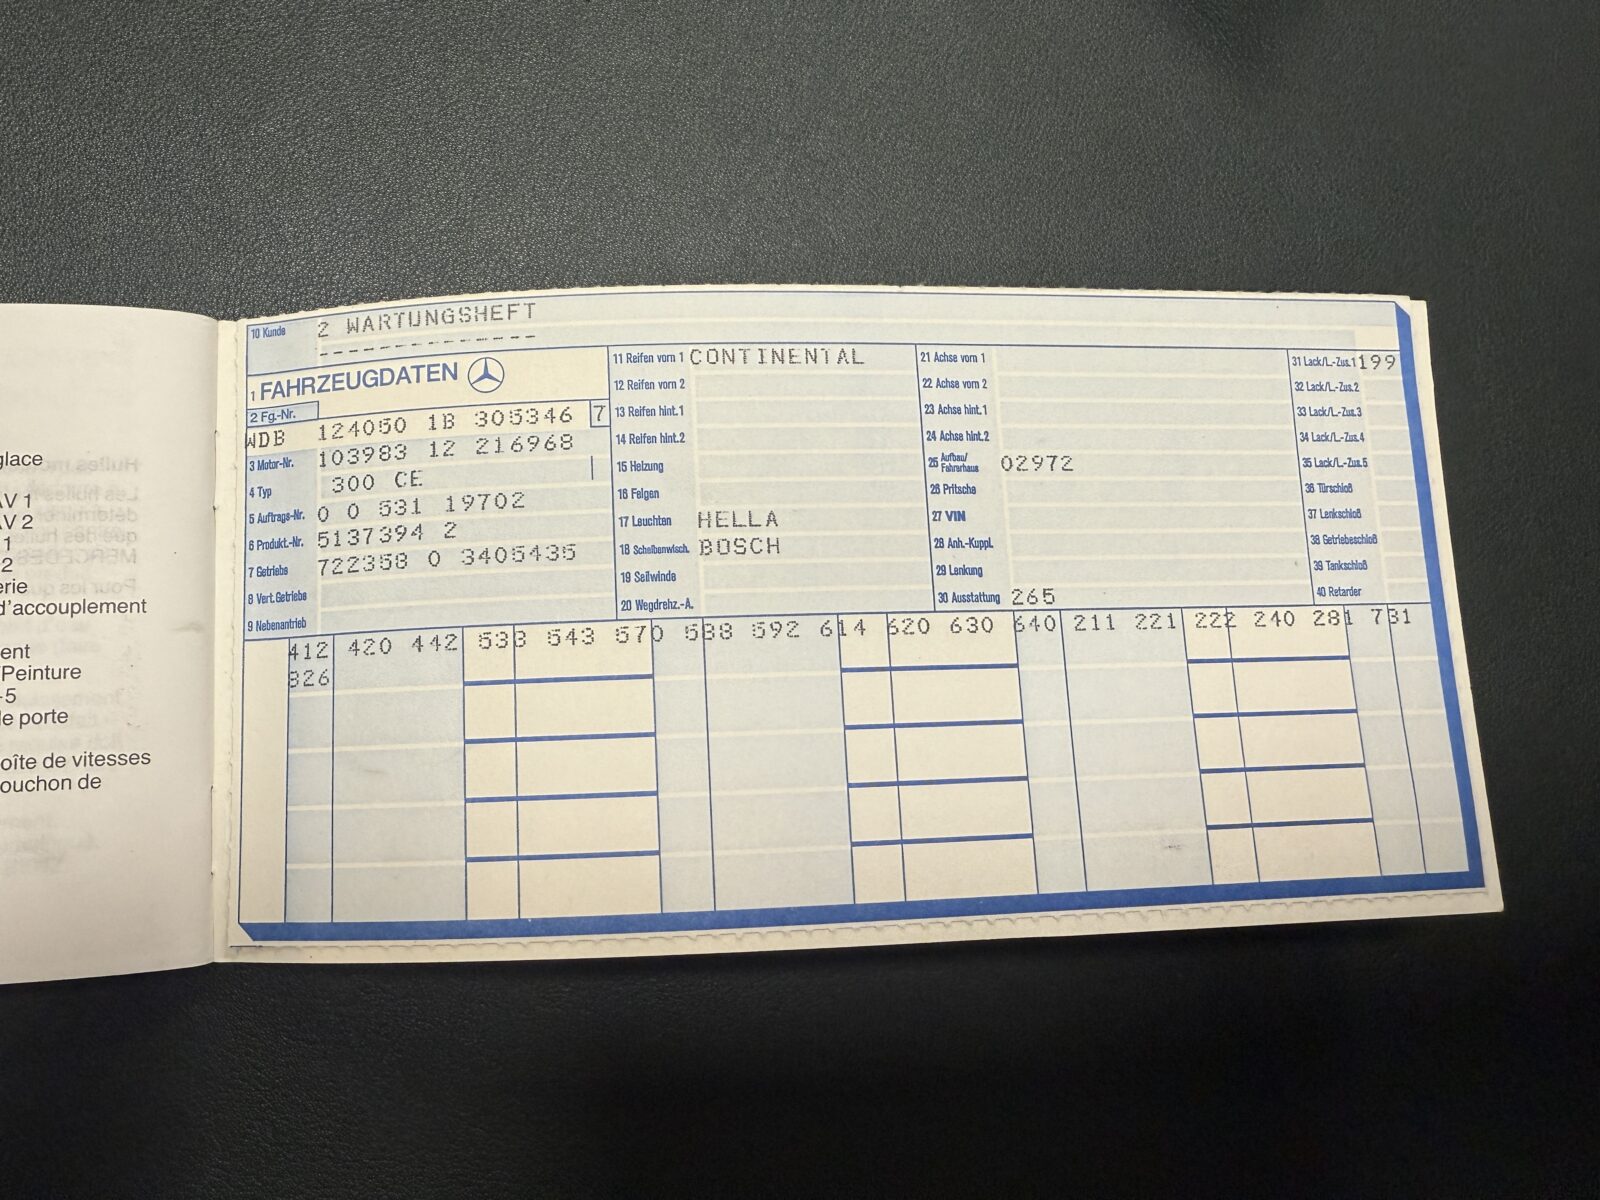 glace
AV 1
AV 2
1
2
erie
d'accouplement
ent
/Peinture
-5
de porte
oîte de vitesses
ouchon de
10 Kunde 2 WARTUNGSHEFT
1 FAHRZEUGDATEN
2 Fg.-Nr.
WDB 124050 1B 305346 7
3 Motor-Nr. 103983 12 216968
4 Typ 300 CE
5 Auftrags-Nr. 0 0 531 19702
6 Produkt.-Nr. 5137394 2
7 Getriebe 722358 0 3405435
8 Vert.Getriebe
9 Nebenantrieb
11 Reifen vorn 1 CONTINENTAL
12 Reifen vorn 2
13 Reifen hint.1
14 Reifen hint.2
15 Heizung
16 Felgen
17 Leuchten HELLA
18 Scheibenwisch. BOSCH
19 Seilwinde
20 Wegdrehz.-A.
21 Achse vorn 1
22 Achse vorn 2
23 Achse hint.1
24 Achse hint.2
25 Aufbau/
Fahrerhaus 02972
26 Pritsche
27 VIN
28 Anh.-Kuppl.
29 Lenkung
30 Ausstattung 265
31 Lack/L.-Zus.1 199
32 Lack/L.-Zus.2
33 Lack/L.-Zus.3
34 Lack/L.-Zus.4
35 Lack/L.-Zus.5
36 Türschloß
37 Lenkschloß
38 Getriebeschloß
39 Tankschloß
40 Retarder
412 420 442 533 543 570 588 592 614 620 630 640 211 221 222 240 281 731
826